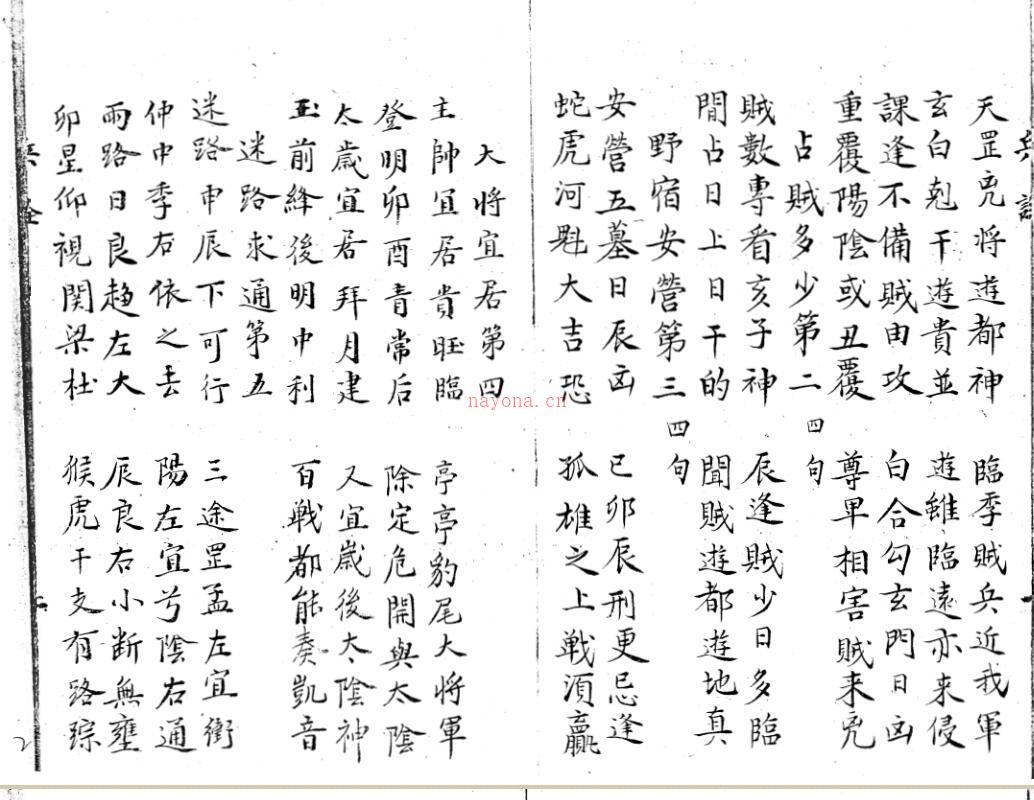 天罡凶将遊都神 臨季賊兵近我軍
玄白剋干遊貴並 遊雖臨遠亦来侵
課逢不備賊由攻 白合勾玄門日凶
重覆陽陰或丑覆 尊卑相害賊来凶
占賊多少第二 四句
賊數專看亥子神 辰逢賊少日多臨
間占日上日干的 聞賊遊都遊地真
野宿安營第三 四句
安營五墓日辰凶 已卯辰刑更忌逢
蛇虎河魁大吉恐 孤雄之上戦須贏
大将宜居第四
主帥宜居貴旺臨 亭亭豹尾大将軍
登明卯酉青常后 除定危開與太陰
太歲宜居拜月建 又宜歲後太陰神
玉前絳後明中利 百戦都能奏凱音
迷路求通第五
迷路申辰下可行 三途罡孟左宜衝
仲中季右依之去 陽左宜兮陰右通
兩路日良趋左大 辰良右小断無壅
卯星仰視関梁杜 猴虎干支有路踪
nayona.cn